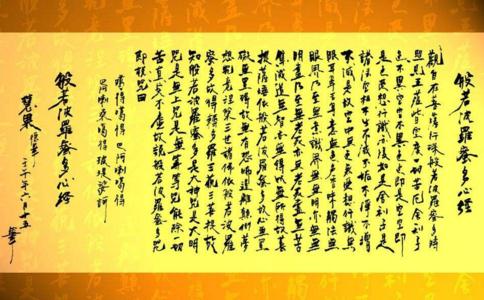 般若波羅蜜多心經
觀自在菩薩行深般若波羅蜜多時
照見五蘊皆空度一切苦厄舍利子
色不異空空不異色色即是空空即
是色受想行識亦復如是舍利子是
諸法空相不生不滅不垢不淨不增
不減是故空中無色無受想行識無
眼耳鼻舌身意無色聲香味觸法無
眼界乃至無意識界無無明亦無無
明盡乃至無老死亦無老死盡無苦
集滅道無智亦無得以無所得故菩
提薩埵依般若波羅蜜多故心無罣
礙無罣礙故無有恐怖遠離顛倒夢
想究竟涅槃三世諸佛依般若波羅
蜜多故得阿耨多羅三藐三菩提故
知般若波羅蜜多是大神咒是大明
咒是無上咒是無等等咒能除一切
苦真實不虛故說般若波羅蜜多咒
即說咒曰
噶得噶得 巴阿喇噶得
巴阿喇桑噶得 玻堤莎訶
般若波羅蜜多心經
慧果
二千年六月十五